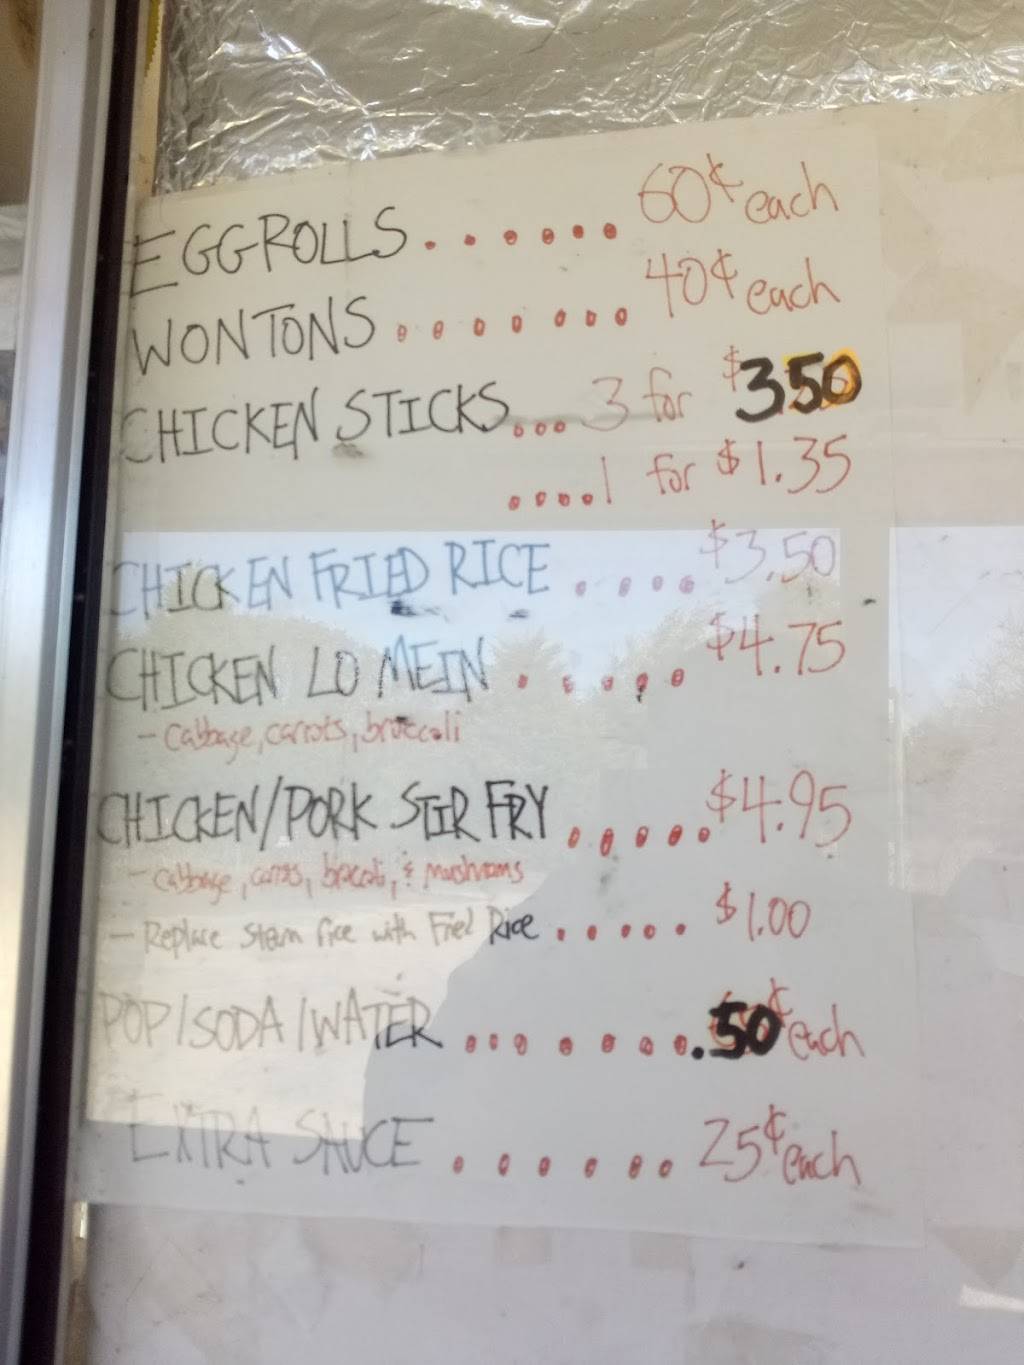 EGGROLLS...... 60¢ each
WONTONS....... 40¢ each
CHICKEN STICKS... 3 for $350
....1 for $1.35
CHICKEN FRIED RICE.... $3.50
CHICKEN LO MEIN..... $4.75
- cabbage, carrots, broccoli
CHICKEN/PORK STIR FRY..... $4.95
- cabbage, carrots, broccoli, & mushrooms
- Replace steam rice with Fried Rice..... $1.00
POP/SODA/WATER....... .50 each
EXTRA SAUCE...... 25¢ each